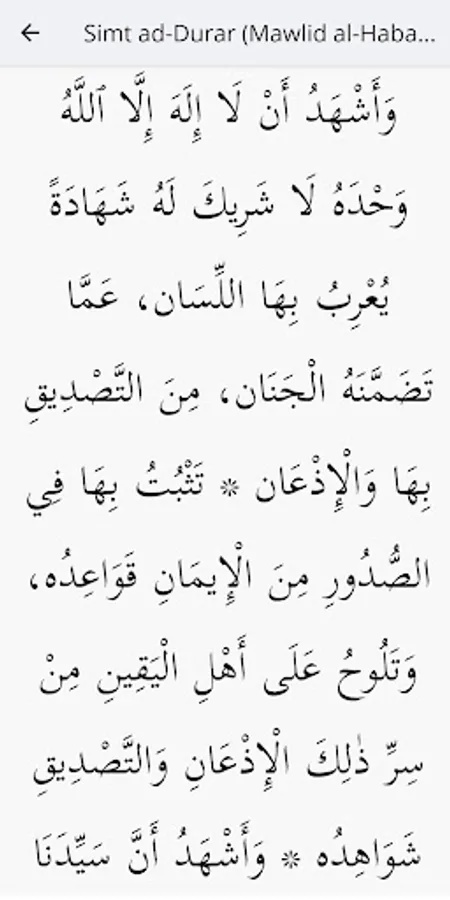 ← Simt ad-Durar (Mawlid al-Haba...
وَأَشْهَدُ أَنْ لَا إِلَهَ إِلَّا ٱللَّهُ
وَحْدَهُ لَا شَرِيكَ لَهُ شَهَادَةً
يُعْرِبُ بِهَا اللِّسَان، عَمَّا
تَضَمَّنَهُ الْجَنَان، مِنَ التَّصْدِيقِ
بِهَا وَالْإِذْعَان ❊ تَثْبُتُ بِهَا فِي
الصُّدُورِ مِنَ الْإِيمَانِ قَوَاعِدُه،
وَتَلُوحُ عَلَى أَهْلِ الْيَقِينِ مِنْ
سِرِّ ذٰلِكَ الْإِذْعَانِ وَالتَّصْدِيقِ
شَوَاهِدُه ❊ وَأَشْهَدُ أَنَّ سَيِّدَنَا